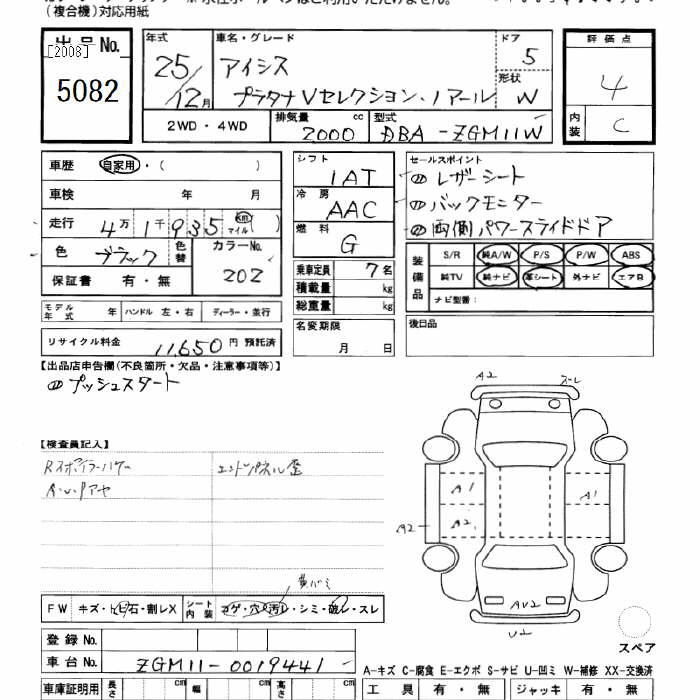 (複合機)対応用紙
出品No.
[2008]
5082
年式
25/12月
車名・グレード
アイシス
プラタナVセレクション・ノアール
ドア
5
形状
W
評価点
4
内装
C
2WD・4WD
排気量 cc
2000
型式
DBA-ZGM11W
車歴 自家用・( )
車検 年 月
走行 4万1千935 km マイル ( )
色 ブラック 色替 カラーNo. 202
保証書 有・無
シフト
1AT
冷房
AAC
燃料
G
乗車定員 7名
積載量 kg
総重量 kg
セールスポイント
レザーシート
バックモニター
両側パワースライドドア
装備品
S/R 純A/W P/S P/W ABS
純TV 純ナビ 革シート 外ナビ エアB
ナビ型番:
モデル年式 年 ハンドル 左・右 ディーラー・並行
名変期限
月 日
後日品
リサイクル料金 11,650 円 預託済
【出品店申告欄(不良箇所・欠品・注意事項等)】
プッシュスタート
【検査員記入】
エンドパネル歪
A2
A1
A1
A2
A2
AU2
U2
スペア
FW キズ・トビ石・割レX シート内装 コゲ・穴・汚レ・シミ・破レ・スレ
登録No.
車台No. ZGM11-0019441
車庫証明用 長さ cm 幅 cm 高さ cm
A-キズ C-腐食 E-エクボ S-サビ U-凹ミ W-補修 XX-交換済
工具 有・無 ジャッキ 有・無